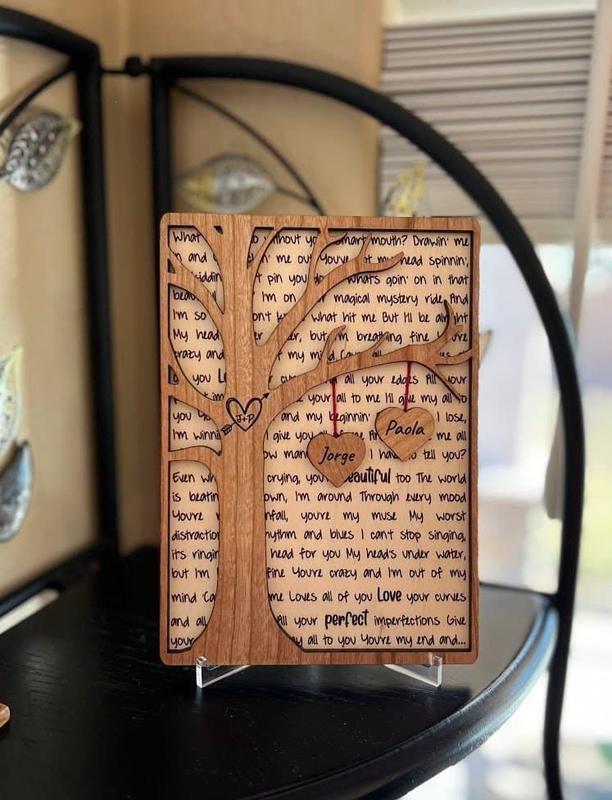 What without mouth? Drawin' me
me out You've head spinnin',
pin you what's goin' on in that
I'm on magical mystery ride And
I'm so what hit me But I'll be alright
My head but I'm breathing fine
crazy and my mind
you all your edges All your
your all to me I'll give my all to
you and my beginnin' I lose,
I'm give you me all
how tell you?
Even crying, beautiful too The world
is beatin' down, I'm around Through every mood
You're you're my muse My worst
rhythm and blues I can't stop singing,
its ringin' head for you My head's under water,
but I'm fine You're crazy and I'm out of my
mind me Loves all of you Love your curves
and all All your perfect imperfections Give
your all to you You're my end and...
J+P
Jorge
Paola